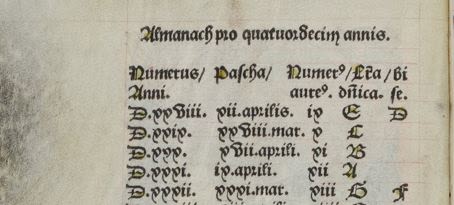 Almanach pro quatuordecim annis.
Numerus/ Pascha/ Numerꝰ/ Lr̃a/ bi
Anni. aureꝰ. dñica. se.
D.xxviii. xii.aprilis. ix E D
D.xxix. xxviii.mar. x C
D.xxx. xvii.aprili. xi B
D.xxxi. ix.aprili. xii A
D.xxxii. xxxi.mar. xiii G F